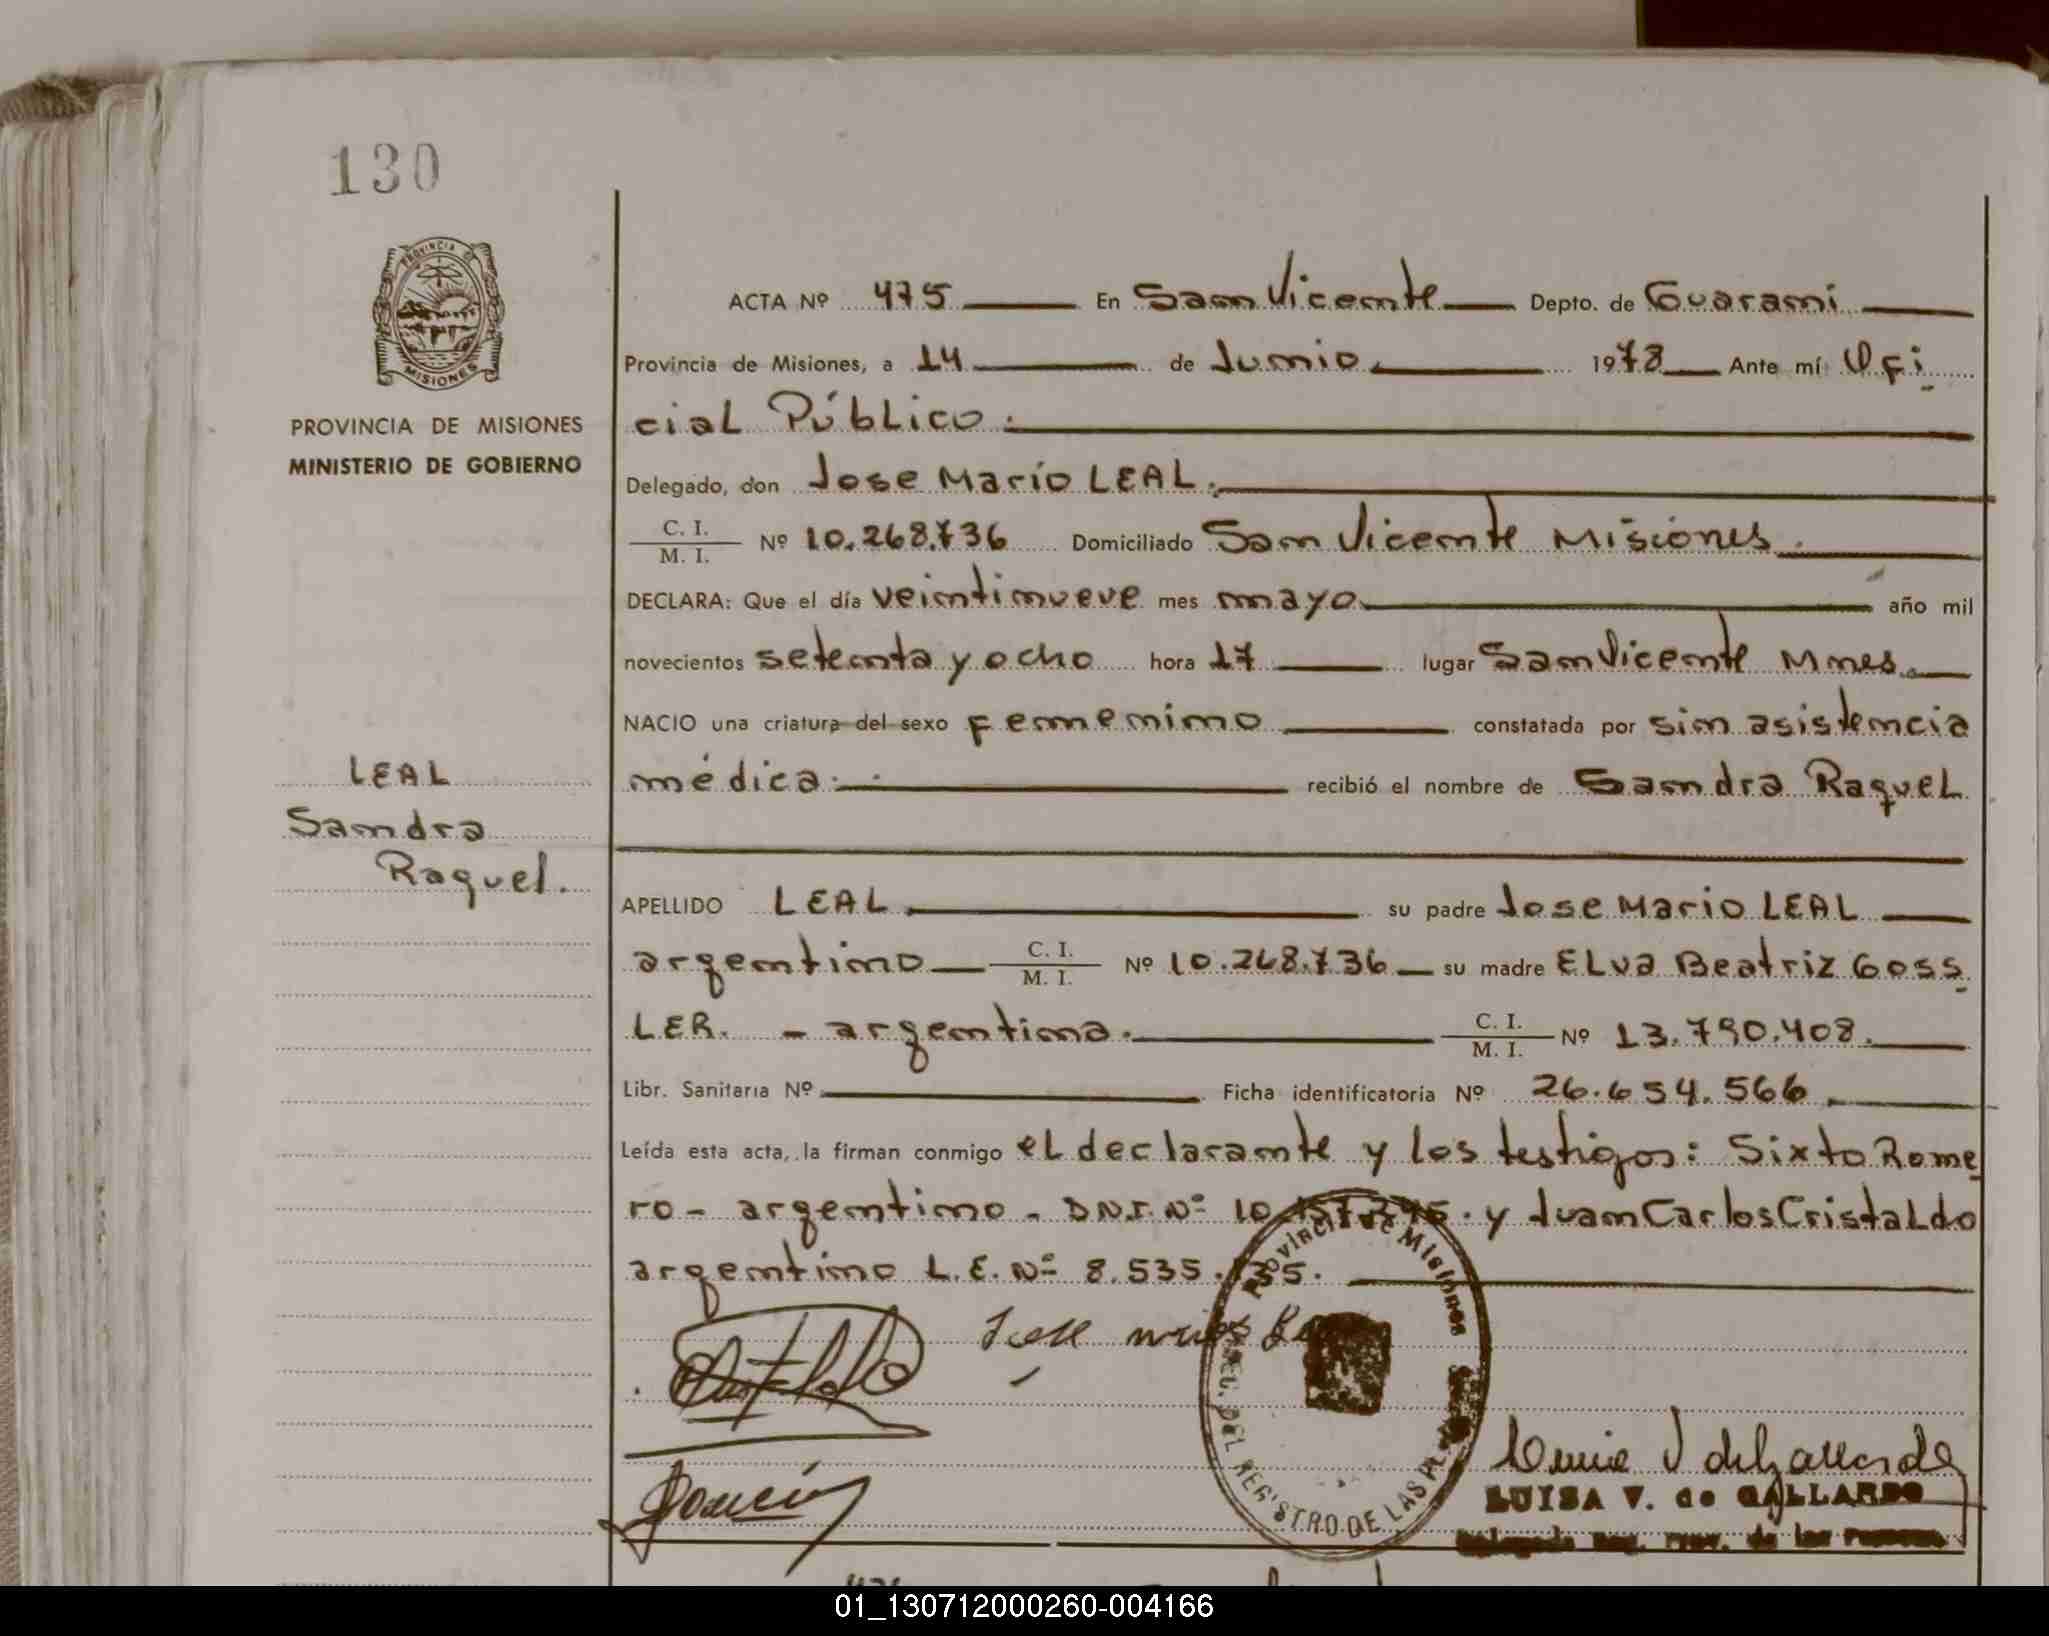 130
PROVINCIA DE MISIONES
PROVINCIA DE MISIONES
MINISTERIO DE GOBIERNO
ACTA Nº 475 En San Vicente Depto. de Guarani
Provincia de Misiones, a 14 de Junio 1978 Ante mí Ofi
cial Público.
Delegado, don Jose Mario LEAL.
C. I.
M. I. Nº 10.268.736 Domiciliado San Vicente Misiones.
DECLARA: Que el día veintinueve mes mayo año mil
novecientos setenta y ocho hora 17 lugar San Vicente Mnes.
NACIO una criatura del sexo femenino constatada por sin asistencia
médica. recibió el nombre de Sandra Raquel
LEAL
Sandra
Raquel.
APELLIDO LEAL. su padre Jose Mario LEAL
argentino C. I.
M. I. Nº 10.268.736 su madre ELva Beatriz Goss
LER. - argentina. C. I.
M. I. Nº 13.790.408.
Libr. Sanitaria Nº Ficha identificatoria Nº 26.654.566
Leída esta acta, la firman conmigo el declarante y los testigos: Sixto Rome
ro - argentino - D.N.I. Nº 10. y Juan Carlos Cristaldo
argentino L.E. Nº 8.535.
Provincia de Misiones
DEL REGISTRO DE LAS
LUISA V. de GALLARDO
Delegada Reg. Prov. de las Personas
01_130712000260-004166